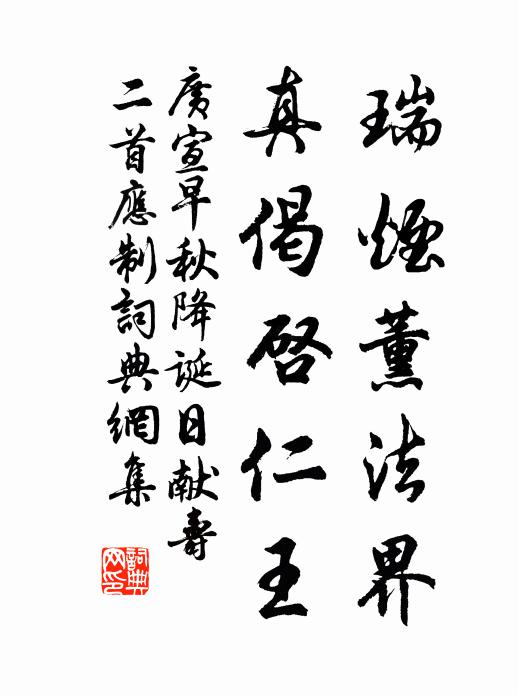 瑞煙薰法界
真偈啓仁王
廣宣早秋降誕日献壽
二首應制詞典網集
詞典
网印